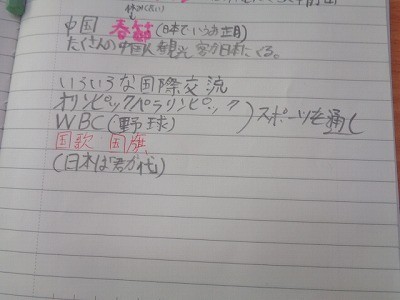 中国 春節 (日本でいうお正月)
たくさんの中国人観光客が日本にくる。
いろいろな国際交流
オリンピックパラリンピック
WBC(野球) )スポーツを通し
国歌 国旗
(日本は君が代)